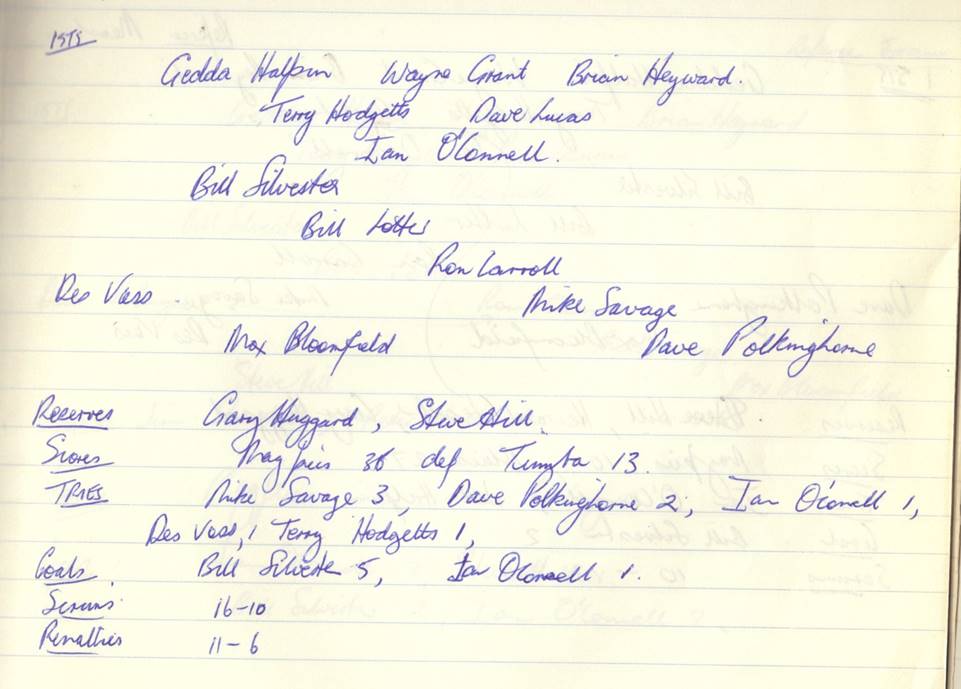 1STS
Gedda Halpin Wayne Grant Brian Heyward.
Terry Hodgetts Dave Lucas
Ian O'Connell.
Bill Silvester
Bill Lotter
Ron Carroll
Des Vass.
Mike Savage
Max Bloomfield Dave Polkinghorne
Reserves Gary Huggard, Steve Hill.
Scores Magpies 36 def Tumba 13.
TRIES Mike Savage 3, Dave Polkinghorne 2, Ian O'Connell 1,
Des Vass, 1 Terry Hodgetts 1,
Goals Bill Silvester 5, Ian O'Connell 1.
Scrums 16-10
Penalties 11-6